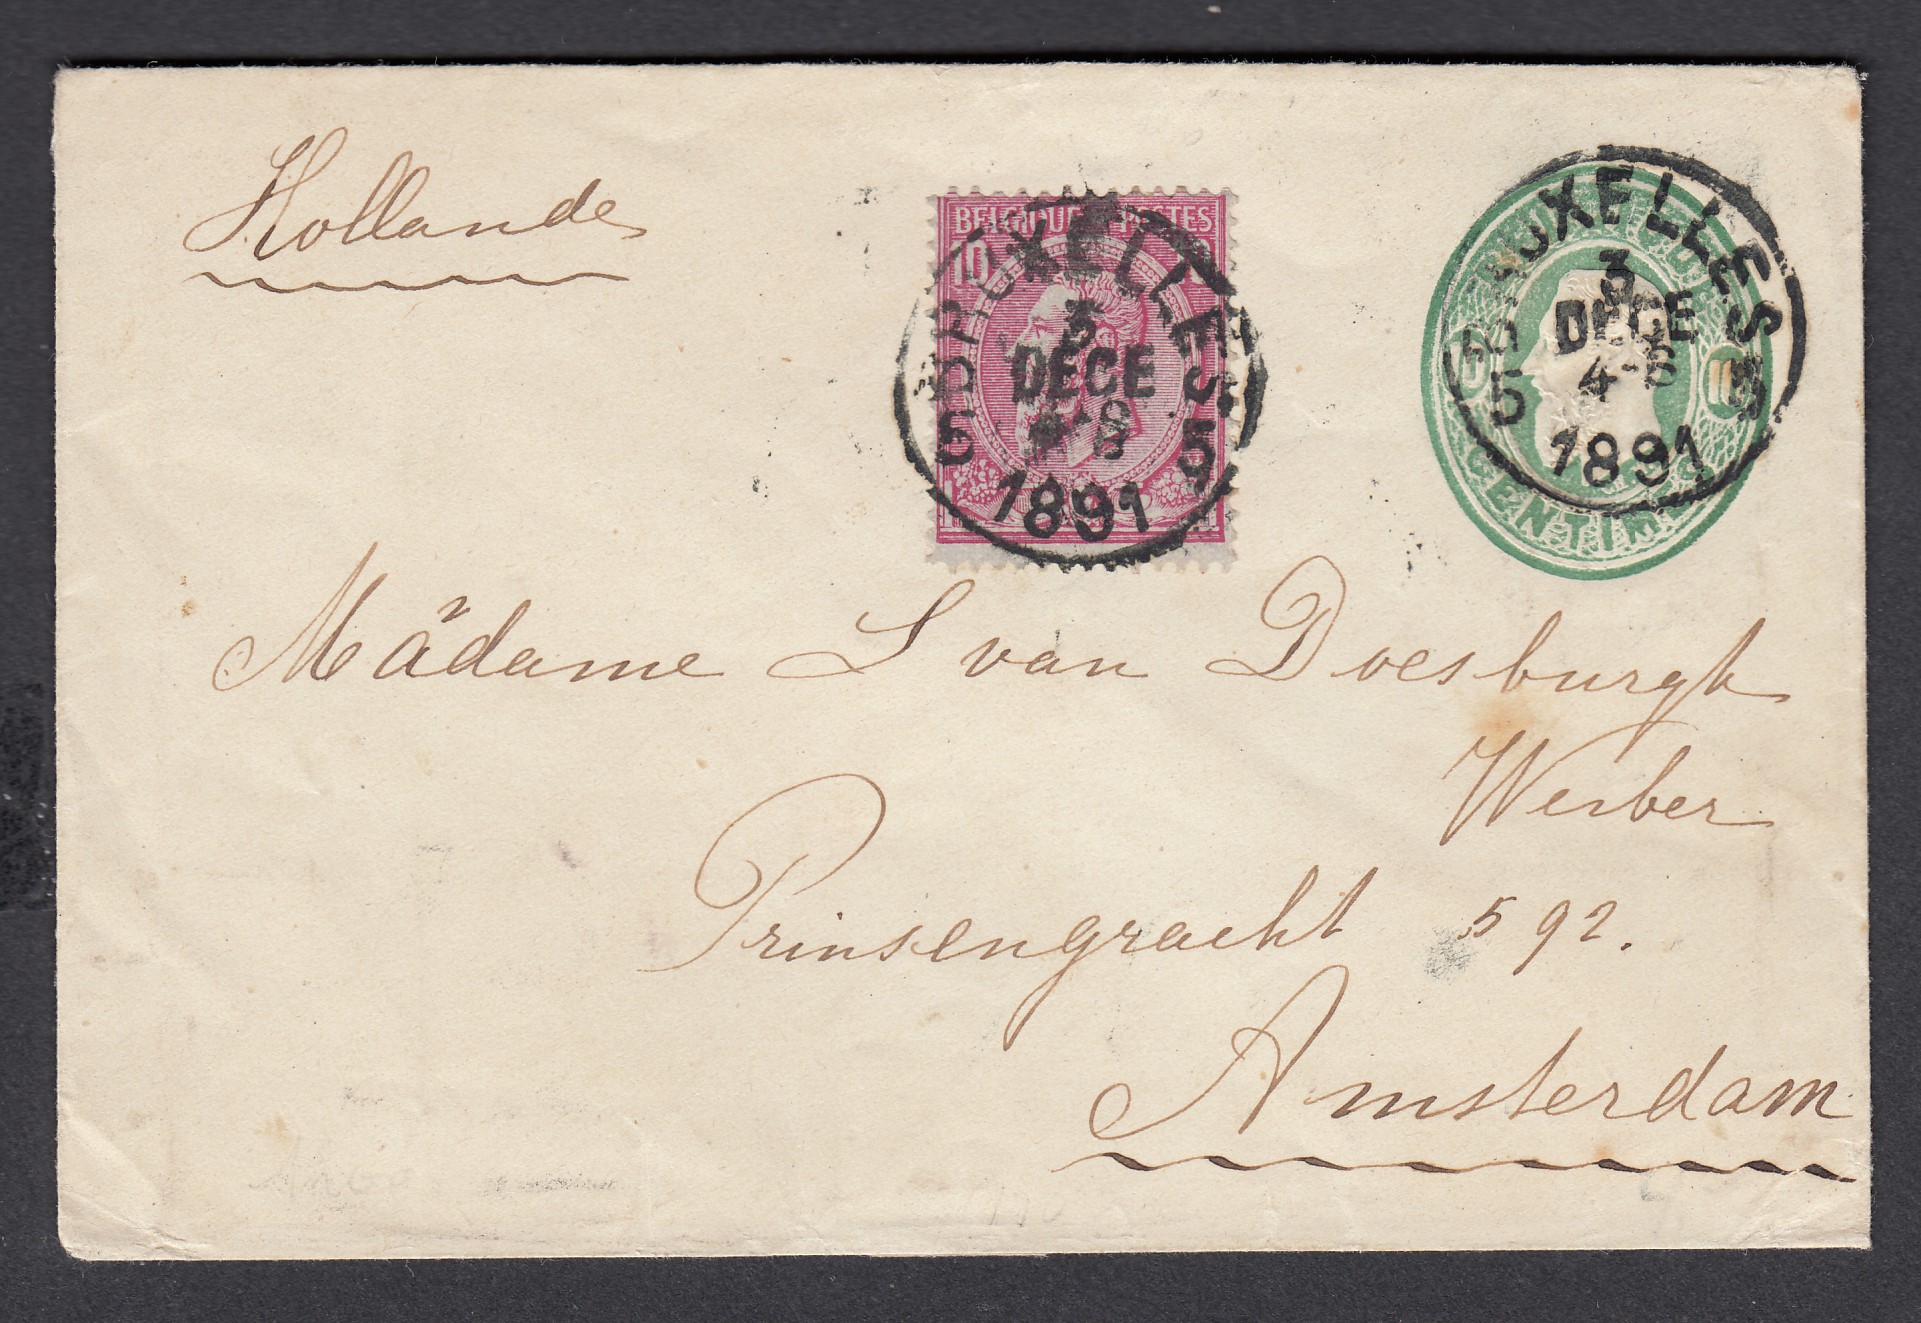 Hollande
BELGIQUE POSTES
10
BRUXELLES
3
DECE
5 5
1891
BRUXELLES
3
DECE
4-6
5 5
1891
Madame S van Doesburgh
Werber
Prinsengracht 592.
Amsterdam